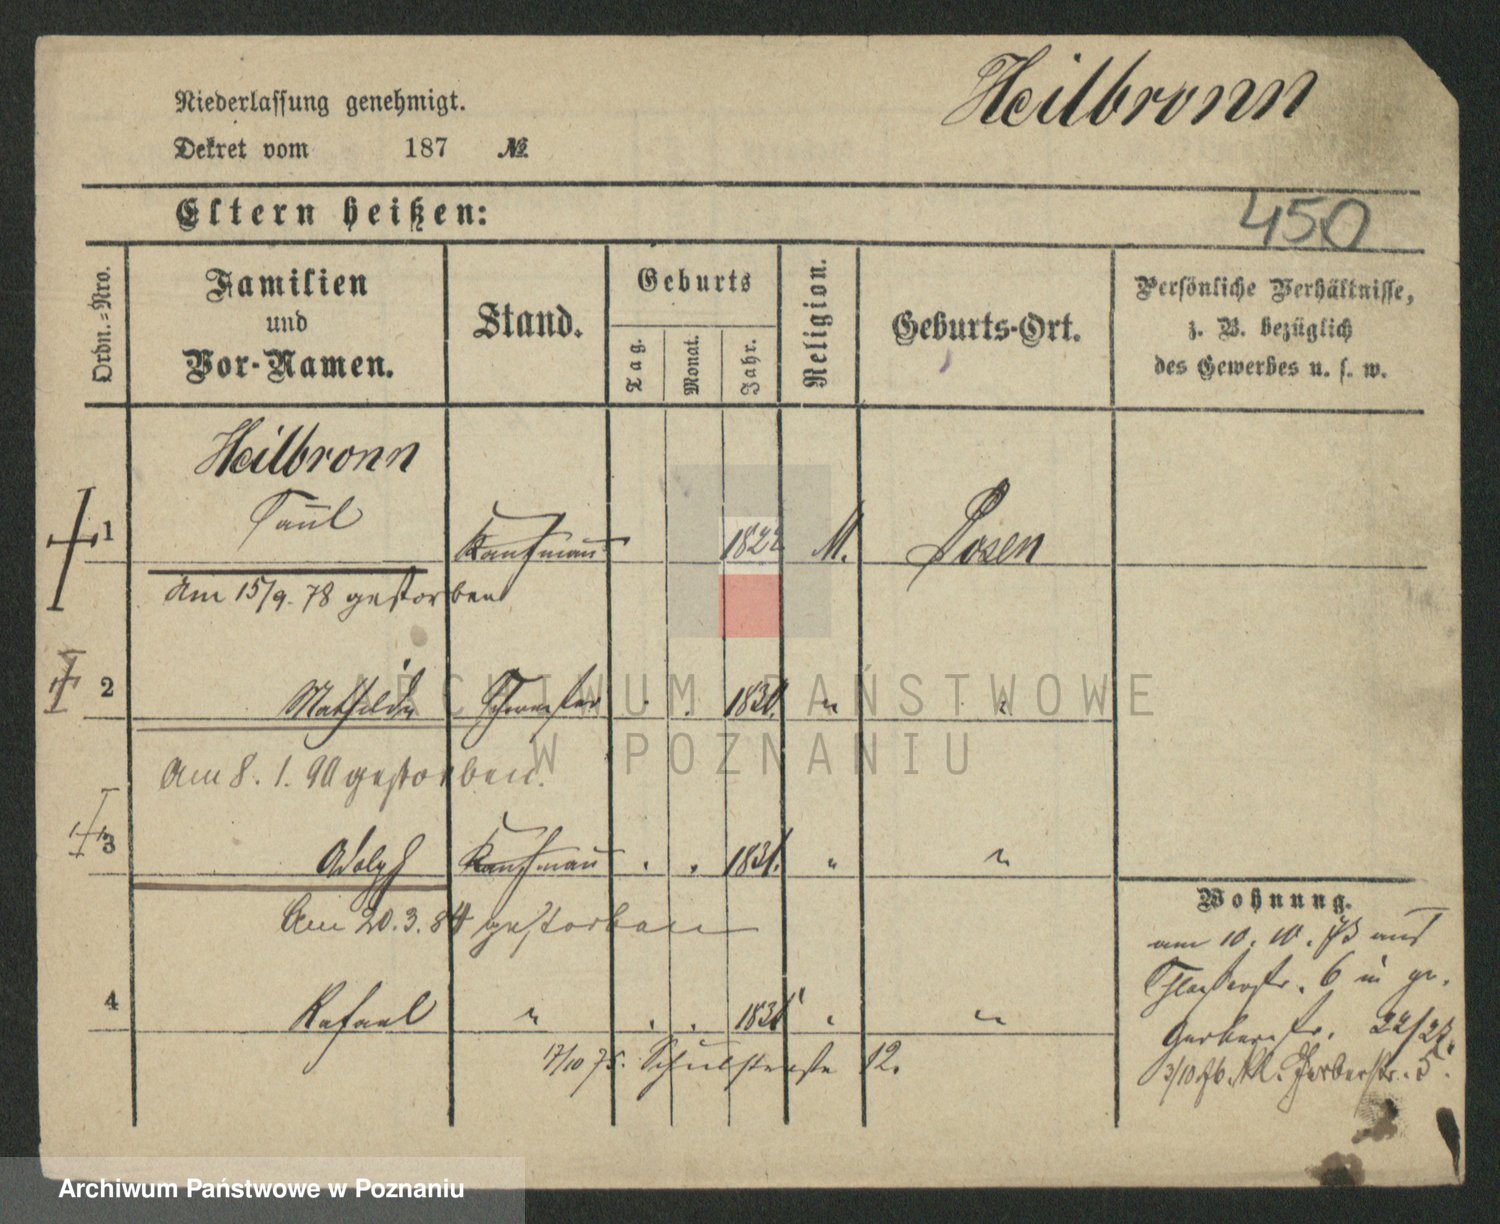 Heilbronn
Niederlassung genehmigt.
Dekret vom 187 №
450
Eltern heißen:
Ordn.-Nro.
Familien und Vor-Namen.
Stand.
Geburts
Tag.
Monat.
Jahr.
Religion.
Geburts-Ort.
Persönliche Verhältnisse,
z. B. bezüglich
des Gewerbes u. s. w.
Heilbronn
1 Kaufmann 1822 M. Posen
Am 15/9. 78 gestorben
2 Mathilde Schwester . . 1830. " "
Am 8. 1. 90 gestorben.
3 Adolph Kaufmann . . 1831. " "
Am 20. 3. 84 gestorben
4 Rafael " . . 1831 " "
17/10 75. Schulstraße 12.
Wohnung.
am 10. 10. 73 aus
6 in gr.
Gerberstr. 22/23.
3/10 76. Kl. Gerberstr. 5.
ARCHIWUM PAŃSTWOWE
W POZNANIU
Archiwum Państwowe w Poznaniu